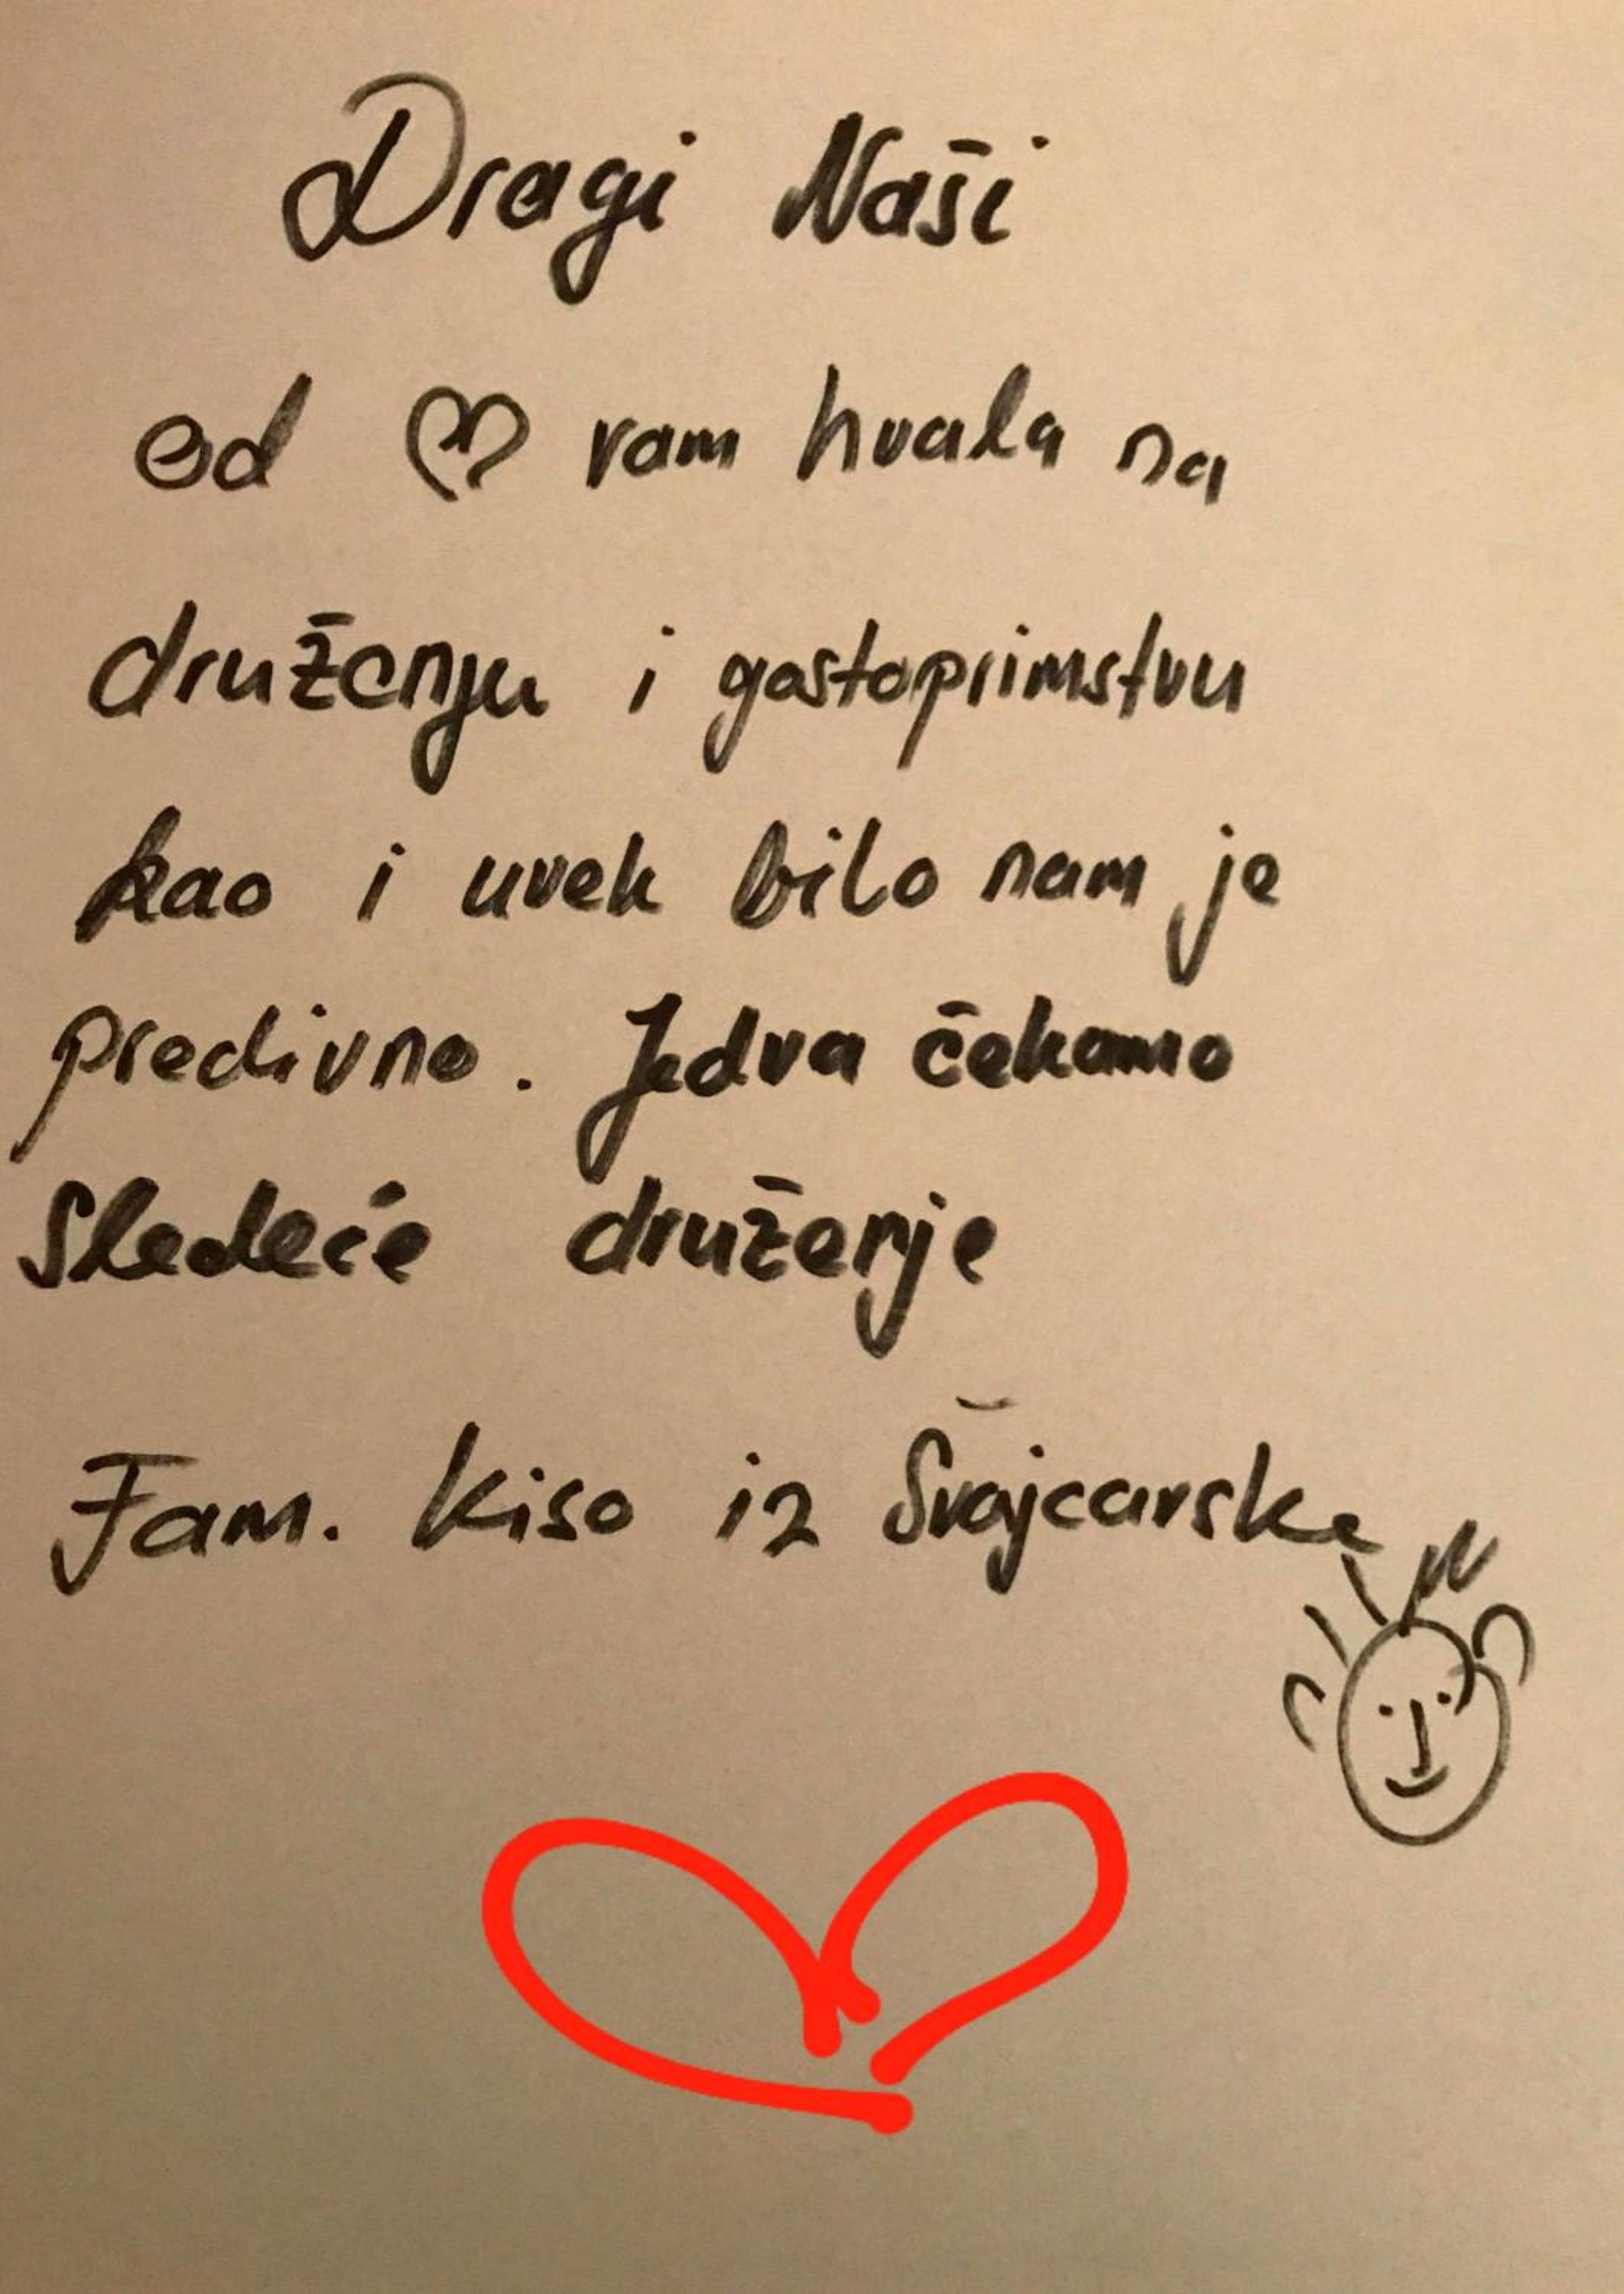 Dragi Naši
od ♡ vam hvala na
druženju i gostoprimstvu
kao i uvek bilo nam je
predivno. Jedva čekamo
sledeće druženje
Fam. Kiso iz Švajcarske